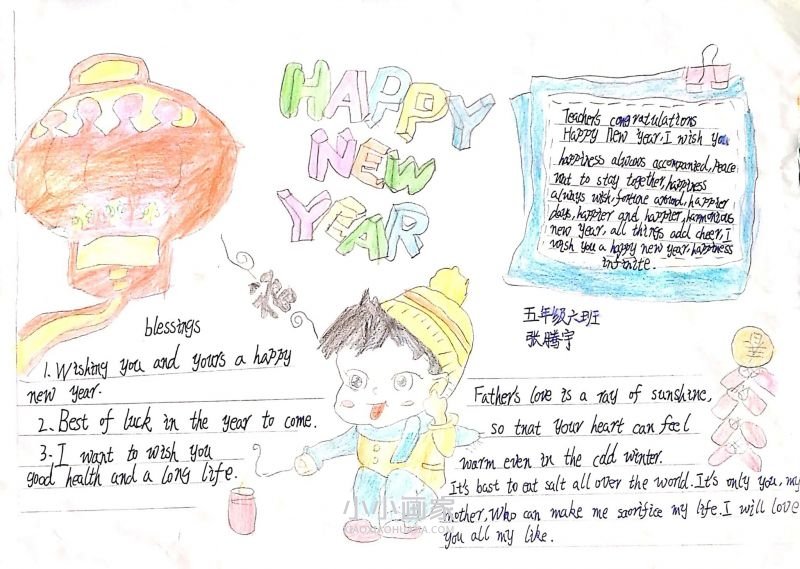 HAPPY
NEW
YEAR
Teacher's congratulations
Happy New Year. I wish you
happiness always accompanied, peace
not to stay together, happiness
always with, fortune around, happier
days, happier and happier, harmonious
new year, all things add cheer, I
wish you a happy new year, happiness
infinite.
福
五年级六班
张腾宇
blessings
1. Wishing you and yours a happy
new year.
2. Best of luck in the year to come.
3. I want to wish you
good health and a long life.
Father's love is a ray of sunshine,
so tnat your heart can feel
warm even in the cdd winter.
It's bast to eat salt all over the world. It's only you, my
mother, Who can make me sacrifice my life. I will love
you all my like.
小小画家
XIAOXIAOHUAJIA.COM